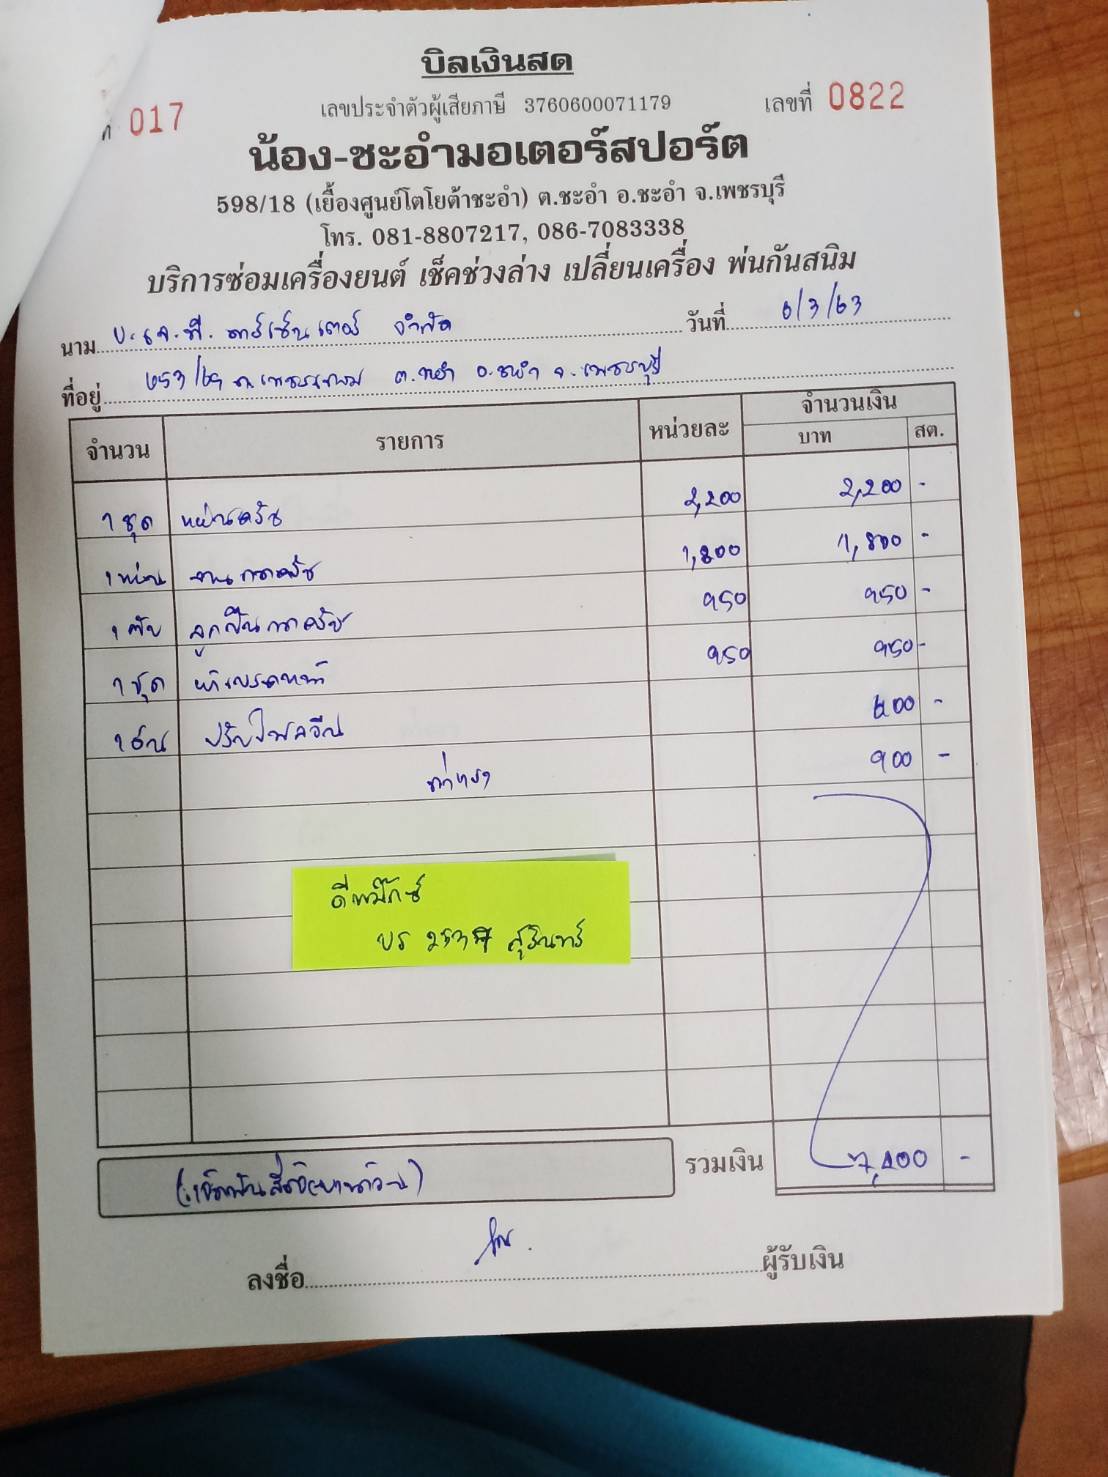 บิลเงินสด
017
เลขประจำตัวผู้เสียภาษี 3760600071179
เลขที่ 0822
น้อง-ชะอำมอเตอร์สปอร์ต
598/18 (เยื้องศูนย์โตโยต้าชะอำ) ต.ชะอำ อ.ชะอำ จ.เพชรบุรี
โทร. 081-8807217, 086-7083338
บริการซ่อมเครื่องยนต์ เช็คช่วงล่าง เปลี่ยนเครื่อง พ่นกันสนิม
นาม บ.เจ.พี. คาร์เซ็นเตอร์ จำกัด วันที่ 6/3/63
ที่อยู่ ถ.เพชรเกษม ต.ชะอำ อ.ชะอำ จ.เพชรบุรี
จำนวน รายการ หน่วยละ จำนวนเงิน
บาท สต.
1 ชุด แผ่นครัช 2,200 2,200 -
1 แผ่น จานกดครัช 1,800 1,800 -
1 ตับ ลูกปืนกดครัช 950 950 -
1 ชุด ผ้าเบรคหน้า 950 950 -
600 -
ค่าแรง 900 -
ดีแม๊กซ์
บร สุรินทร์
รวมเงิน 7,400 -
ลงชื่อ ผู้รับเงิน